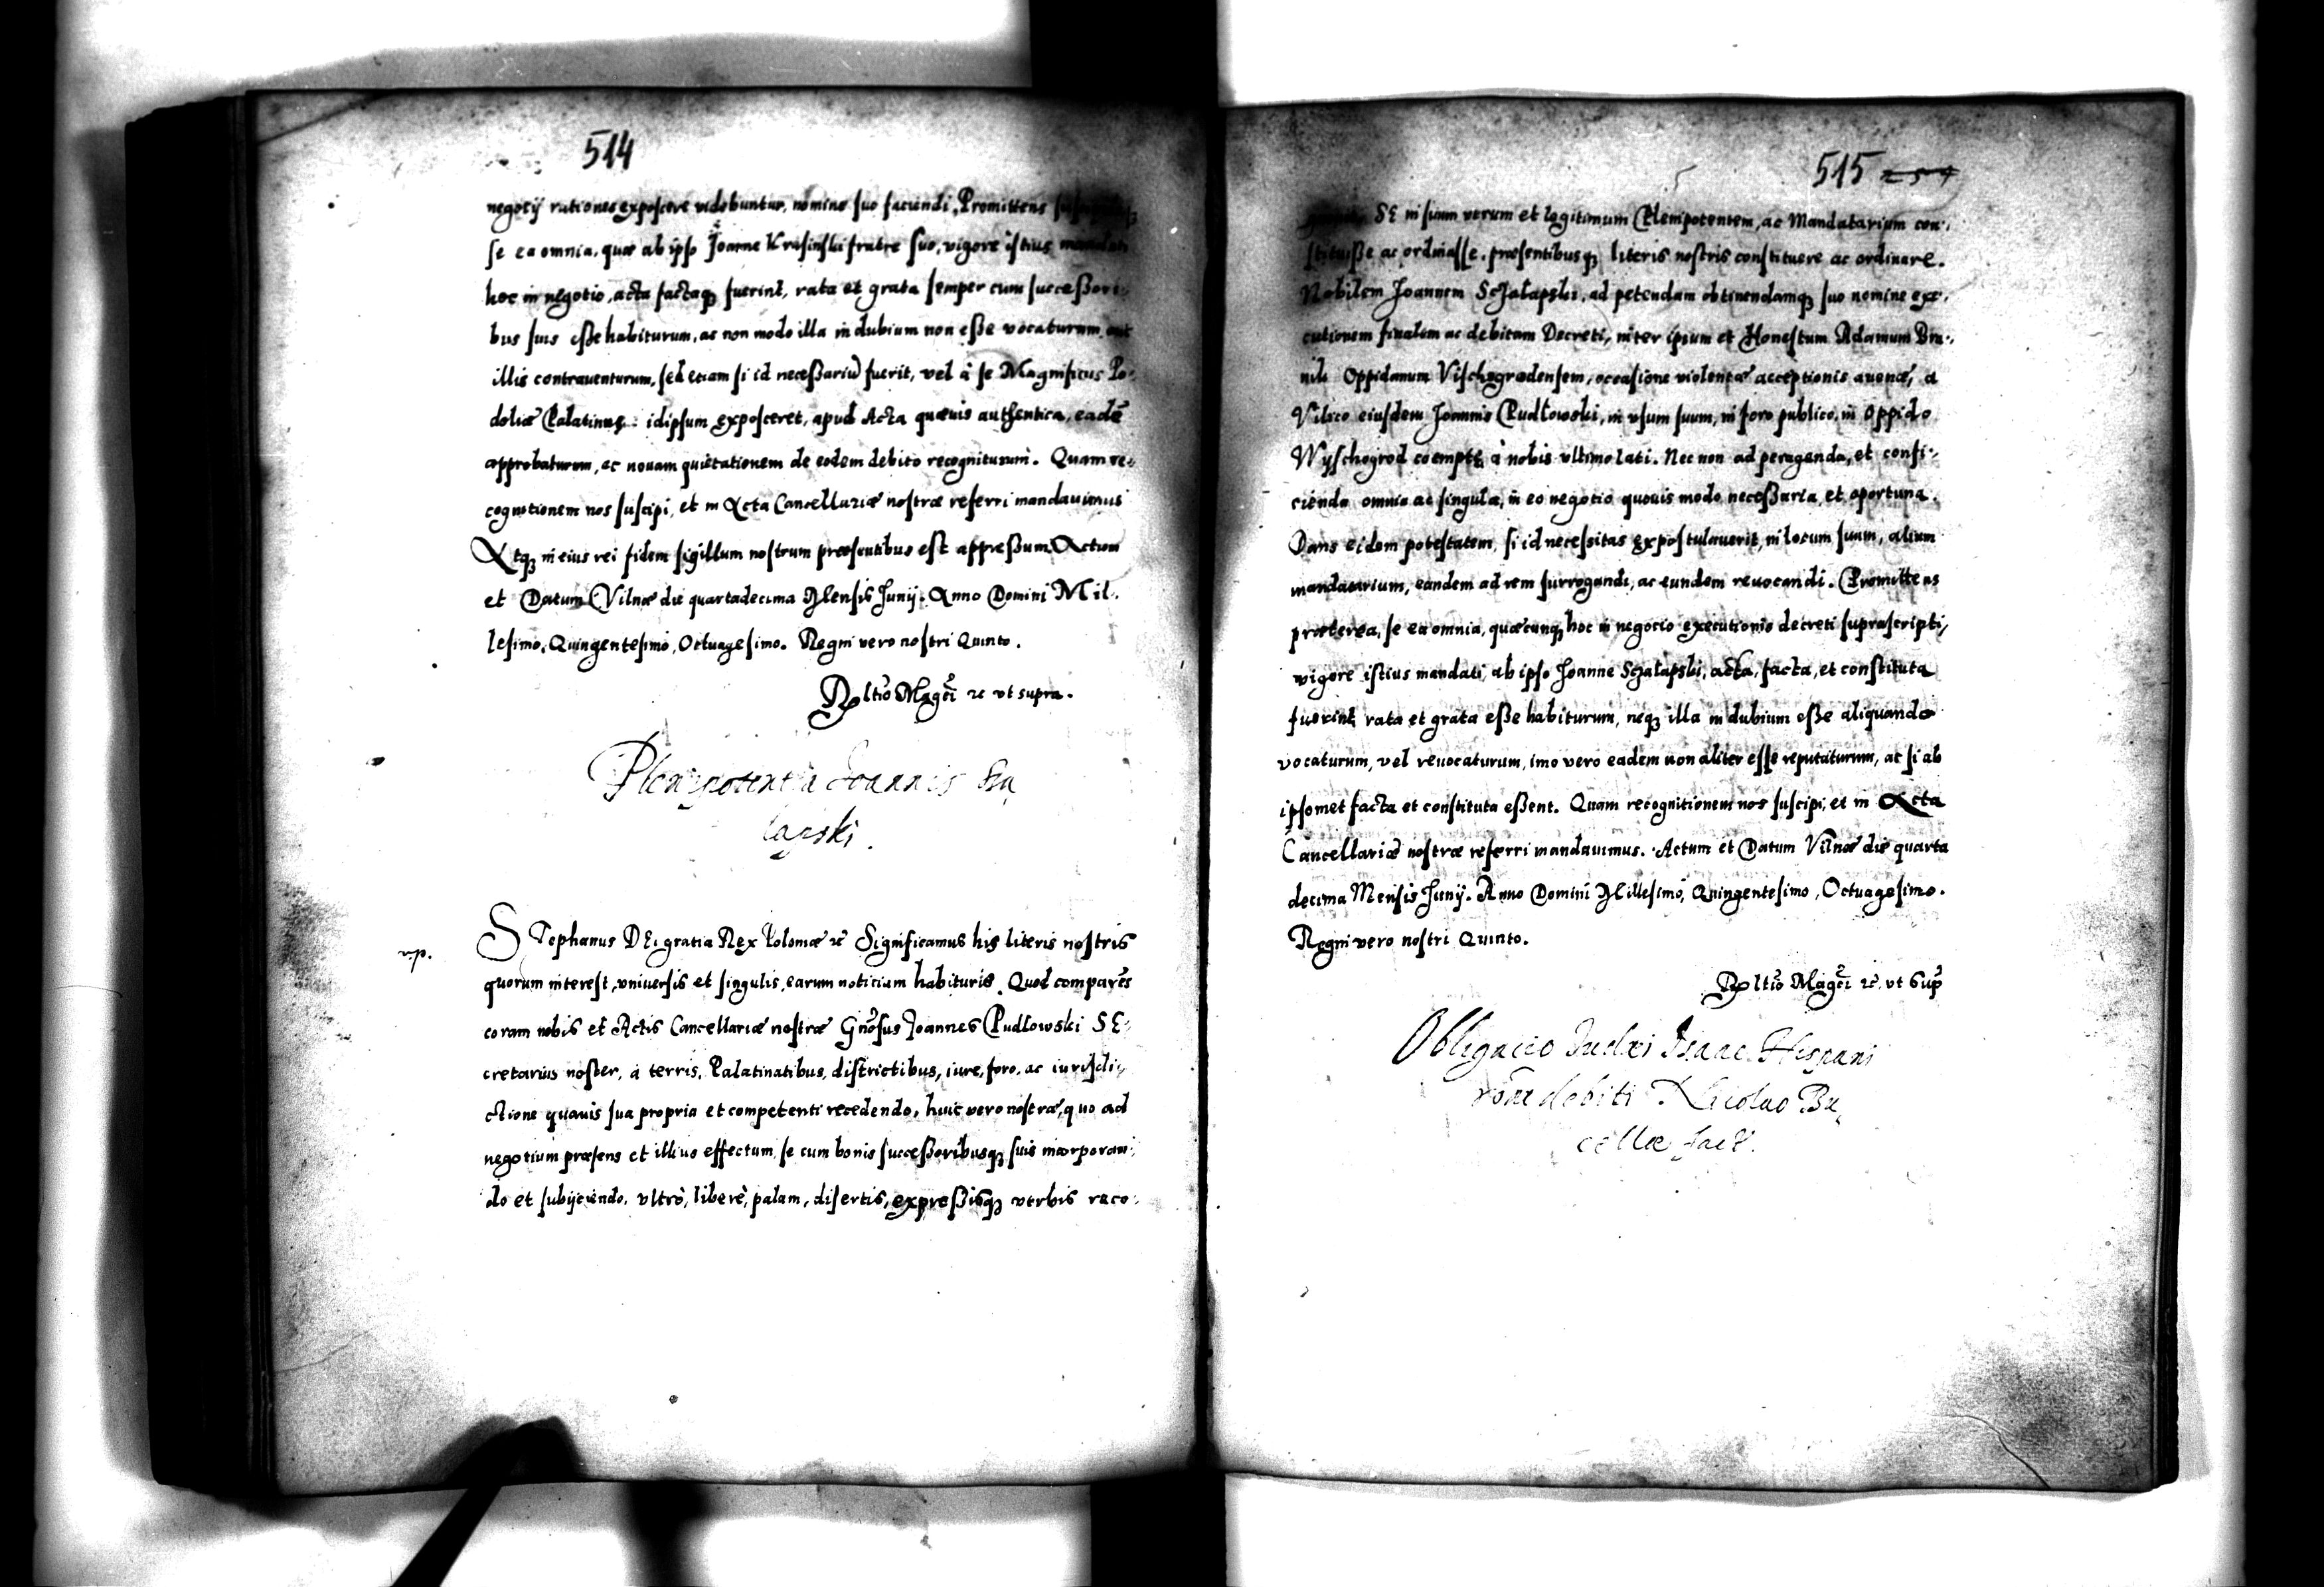 514
negotij rationes exposcere videbuntur, nomine suo faciendi, Promittens
se ea omnia, quæ ab ipso Joanne Krasinski fratre suo, vigore istius mandati
hoc in negotio, acta factaq; fuerint, rata et grata semper cum successori-
bus suis esse habiturum, ac non modo illa in dubium non esse vocaturum, aut
illis contrauenturum, sed etiam si id necessariū fuerit, vel à se Magnificus Po-
doliæ Palatinus idipsum exposceret, apud Acta quæuis authentica, eadē
approbaturum, ac nouam quietationem de eodem debito recogniturum. Quam re-
cognitionem nos suscipi, et in Acta Cancellariæ nostræ referri mandauimus
Atq; in eius rei fidem sigillum nostrum præsentibus est appressum. Actum
et Datum Vilnæ die quartadecima Mensis Junij. Anno Domini Mil-
lesimo, Quingentesimo, Octuagesimo. Regni vero nostri Quinto.
Rltio Magci zc vt supra.
Plenipotentia Joannis Pu
lapski.
v.p.
STephanus DEi gratia Rex Poloniæ zc Significamus his literis nostris
quorum interest, vniuersis et singulis, earum noticiam habituris. Quod comparēs
coram nobis et Actis Cancellariæ nostræ Gnosus Joannes Pudłowski SE-
cretarius noster, à terris, Palatinatibus, districtibus, iure, foro, ac iurisdi-
ctione quauis sua propria et competenti recedendo, huic vero nostræ, quo ad
negotium præsens et illius effectum, se cum bonis successoribusq; suis incorporan-
do et subijciendo, vltrò, liberè, palam, disertis, expressisq; verbis reco-
515
SE in suum verum et legitimum Plenipotentem, ac Mandatarium con-
stituisse ac ordinasse, præsentibusq; literis nostris constituere ac ordinare.
Nobilem Joannem Szałapski, ad petendam obtinendamq; suo nomine exe-
cutionem finalem ac debitam Decreti, inter ipsum et Honestum Adamum
Oppidanum Vischogrodensem, occasione violentæ acceptionis auenæ, a
Villico eiusdem Joannis Pudłowski, in vsum suum, in foro publico, in oppido
Wyschogrod coemptę à nobis vltimo lati. Nec non ad peragenda, et confi-
cienda omnia ac singula, in eo negotio quouis modo necessaria et oportuna.
Dans eidem potestatem, si id necessitas expostulauerit, in locum suum, alium
mandatarium, eandem ad rem surrogandi, ac eundem reuocandi. Promittens
præterea, se ea omnia, quæcunq; hoc in negocio executionis decreti suprascripti,
vigore istius mandati, ab ipso Joanne Szałapski, acta, facta, et constituta
fuerint, rata et grata esse habiturum, neq; illa in dubium esse aliquando
vocaturum, vel reuocaturum, imo vero eadem non aliter esse reputaturum, ac si ab
ipsomet facta et constituta essent. Quam recognitionem nos suscipi, et in Acta
Cancellariæ nostræ referri mandauimus. Actum et Datum Vilnæ die quarta
decima Mensis Junij. Anno Domini Millesimo, Quingentesimo, Octuagesimo.
Regni vero nostri Quinto.
Rltio Magci zc vt Sup
Obligacio Judæi Isaac Hispani
rōne debiti Nicolao Bu-
cellæ fact.